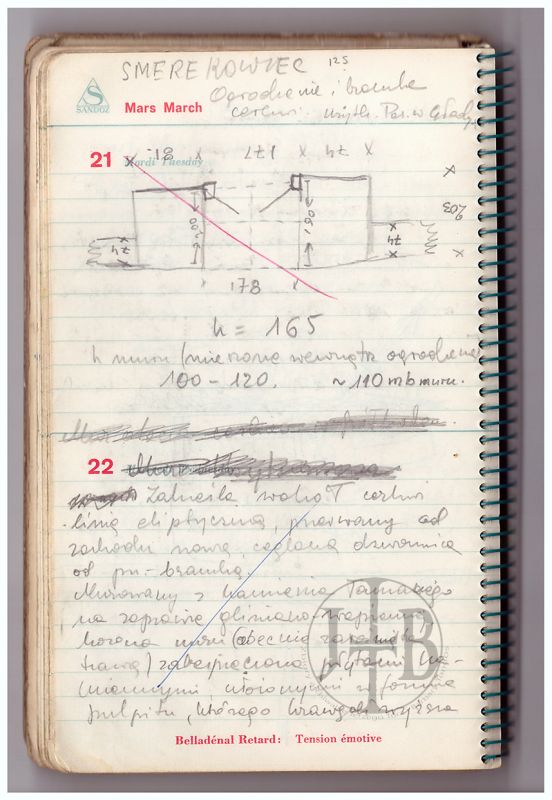 SMEREKOWIEC 125
Ogrodzenie i bramka
cerkwi. użytk. Par. w Gład
SANDOZ
Mars March
21 Mardi Tuesday
81 177 74
203
190 190
74 74
178
h = 165
h muru (mierzona wewnątrz ogrodzenia
100 – 120. ~ 110 mb muru.
22
Zakreśla wokoł cerkwi
linią eliptyczną, przerwany od
zachodu nową, ceglaną dzwonnicą
od pn. – bramką.
Murowany z kamienia łamanego
na zaprawie gliniano-wapiennej
korona muru (obecnie zarośnięta
trawą) zabezpieczona płytami ka-
miennymi, ułożonymi w formie
pulpitu, którego krawędź wyższa
JTB
Belladénal Retard: Tension émotive